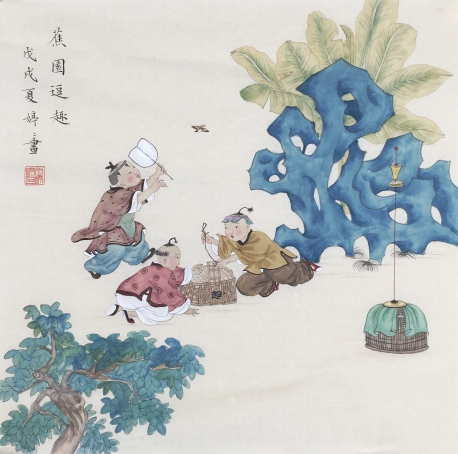 蕉園逗趣
戊戌夏婷婷畫